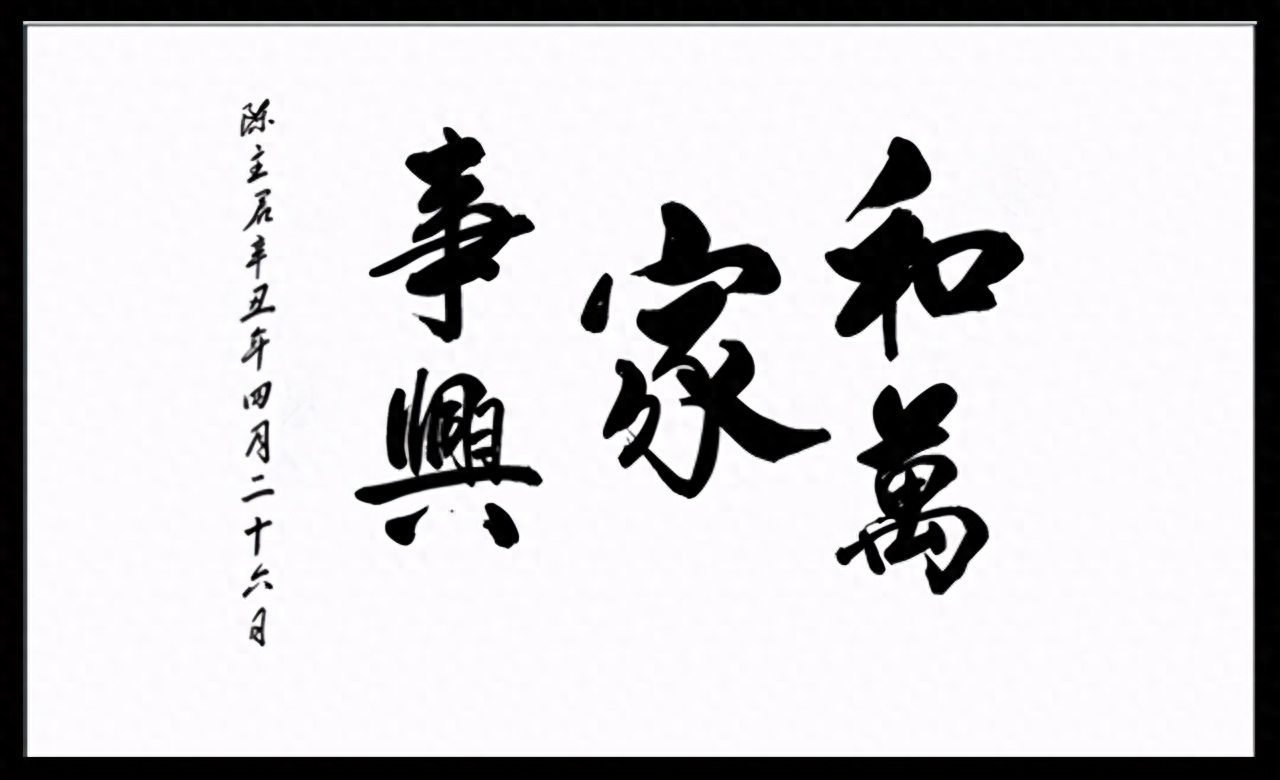 和萬
家
事興
陈主君辛丑年四月二十六日